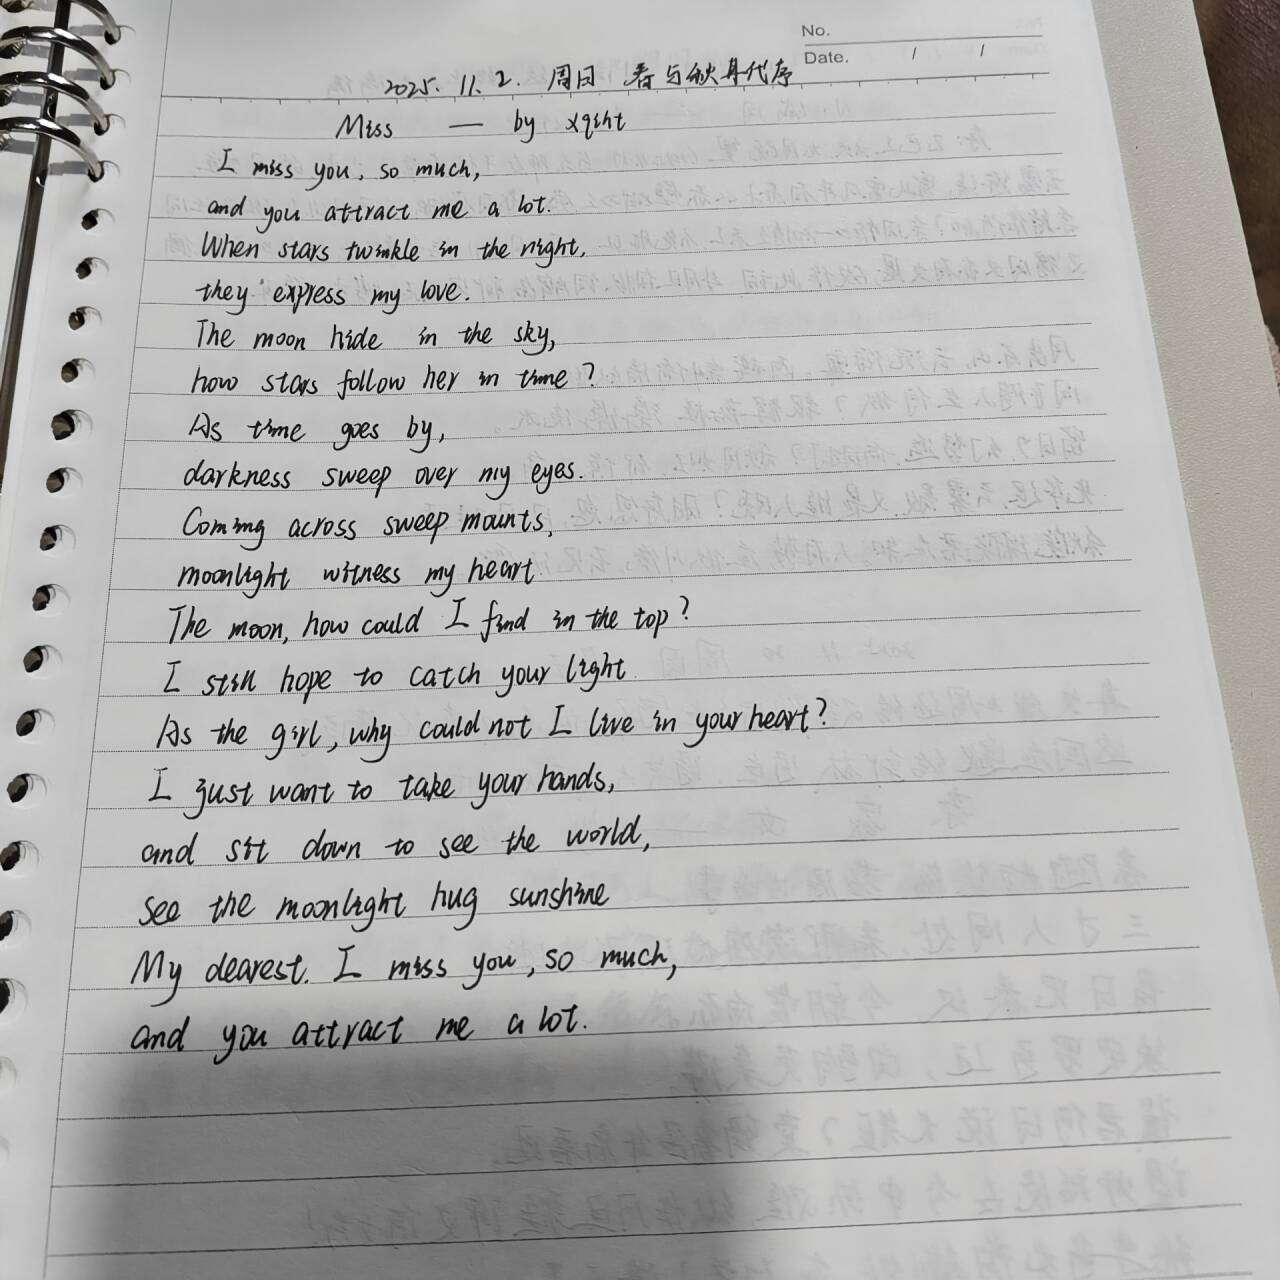 No.
Date. / /
2025. 11. 2. 周日 春与秋其代序
Miss — by xqiht
I miss you, so much,
and you attract me a lot.
When stars twinkle in the night,
they express my love.
The moon hide in the sky,
how stars follow her in time?
As time goes by,
darkness sweep over my eyes.
Coming across sweep mounts,
moonlight witness my heart.
The moon, how could I find in the top?
I still hope to catch your light.
As the girl, why could not I live in your heart?
I just want to take your hands,
and sit down to see the world,
see the moonlight hug sunshine
My dearest. I miss you, so much,
and you attract me a lot.